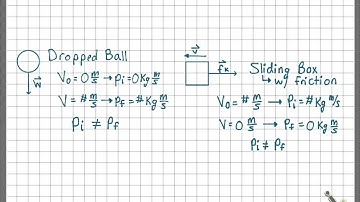 Dropped Ball
V₀ = 0 m/s → Pi = 0 Kg m/s
V = # m/s → Pf = # Kg m/s
Pi ≠ Pf
W
V
fk
Sliding Box
↳ w/ friction
V₀ = # m/s → Pi = # Kg m/s
V = 0 m/s → Pf = 0 Kg m/s
Pi ≠ Pf